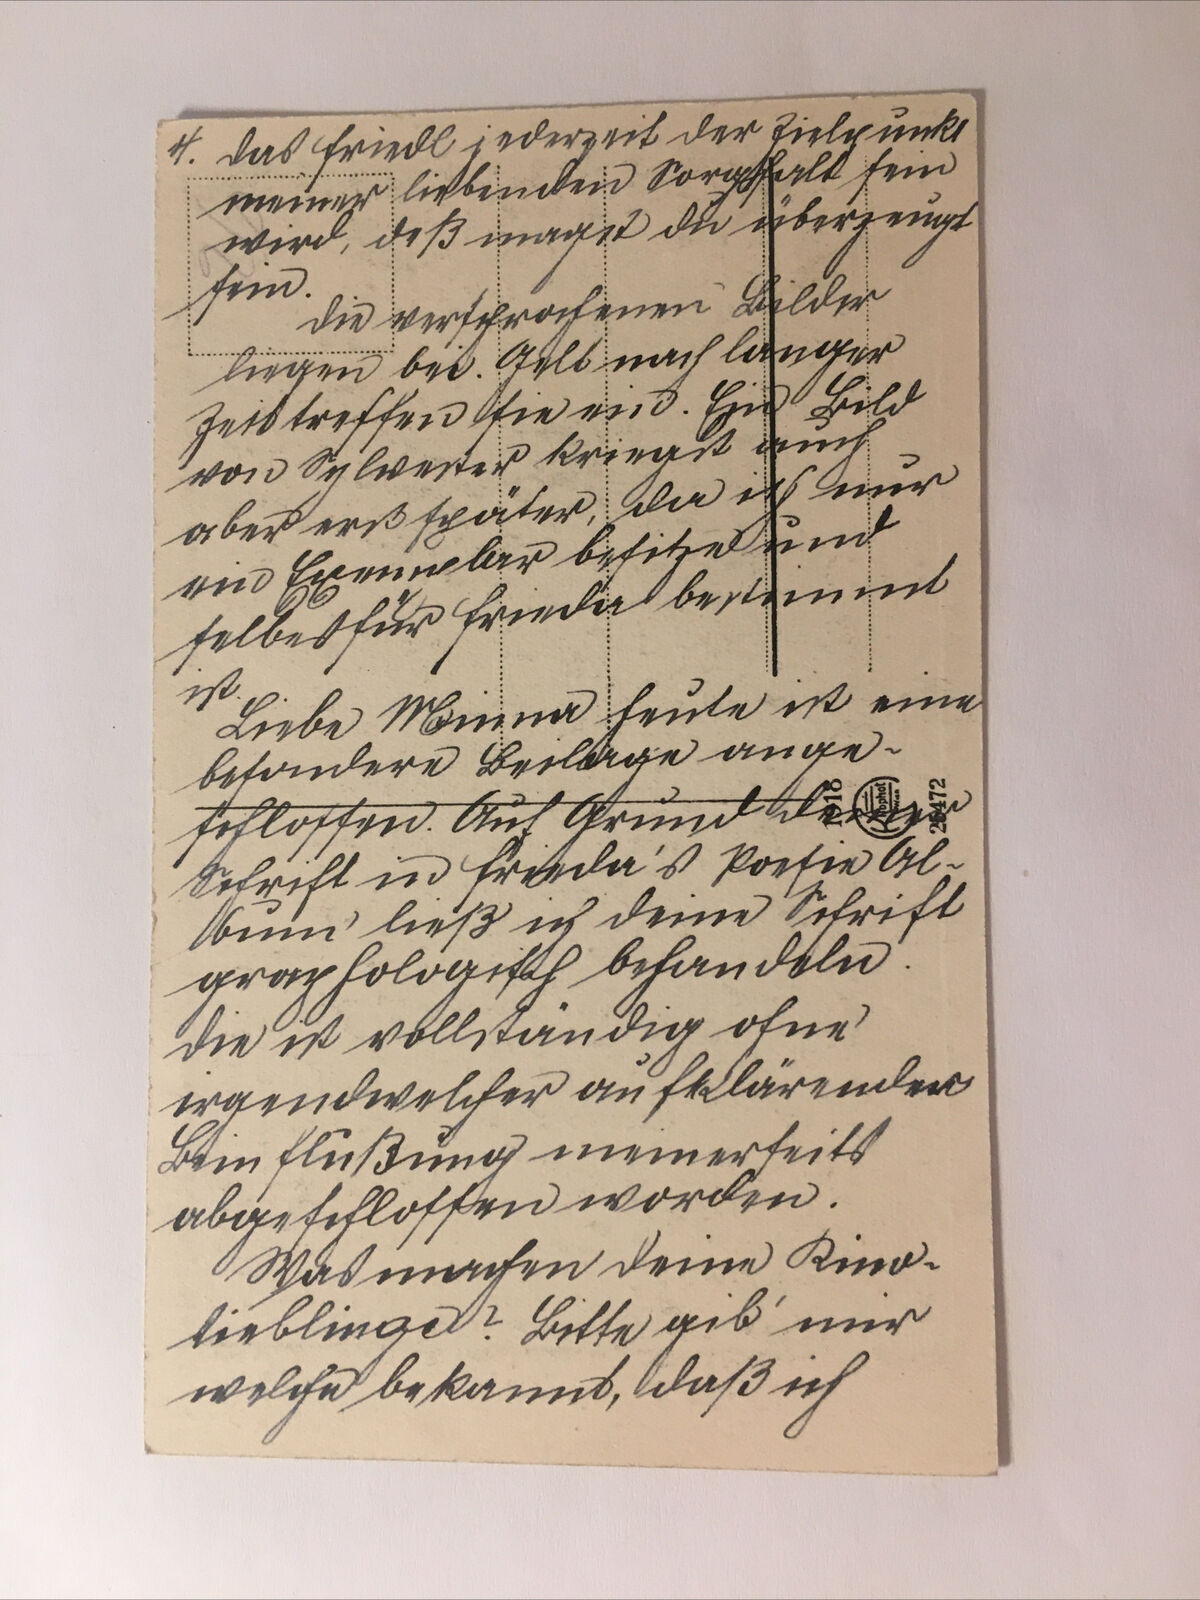 4. Das Friedl jederzeit der Zielpunkt
meiner liebenden Sorgfalt sein
wird, deß magst du überzeugt
sein.
Die versprochenen Bilder
liegen bei. Gelt nach langer
Zeit treffen sie ein. Ein Bild
von Sylvester kriegst auch
aber erst später, da ich nur
ein Exemplar besitze und
selbes für Frieda bestimmt
ist.
Liebe Minna heute ist eine
besondere Beilage ange-
schlossen. Auf Grund deiner
Schrift in Frieda's Poesie Al-
bum ließ ich deine Schrift
graphologisch behandeln.
Die ist vollständig ohne
irgendwelcher aufklärender
Beinflußung meinerseits
abgeschlossen worden.
Was machen deine Kino-
lieblinge? Bitte gib' mir
welche bekannt, daß ich